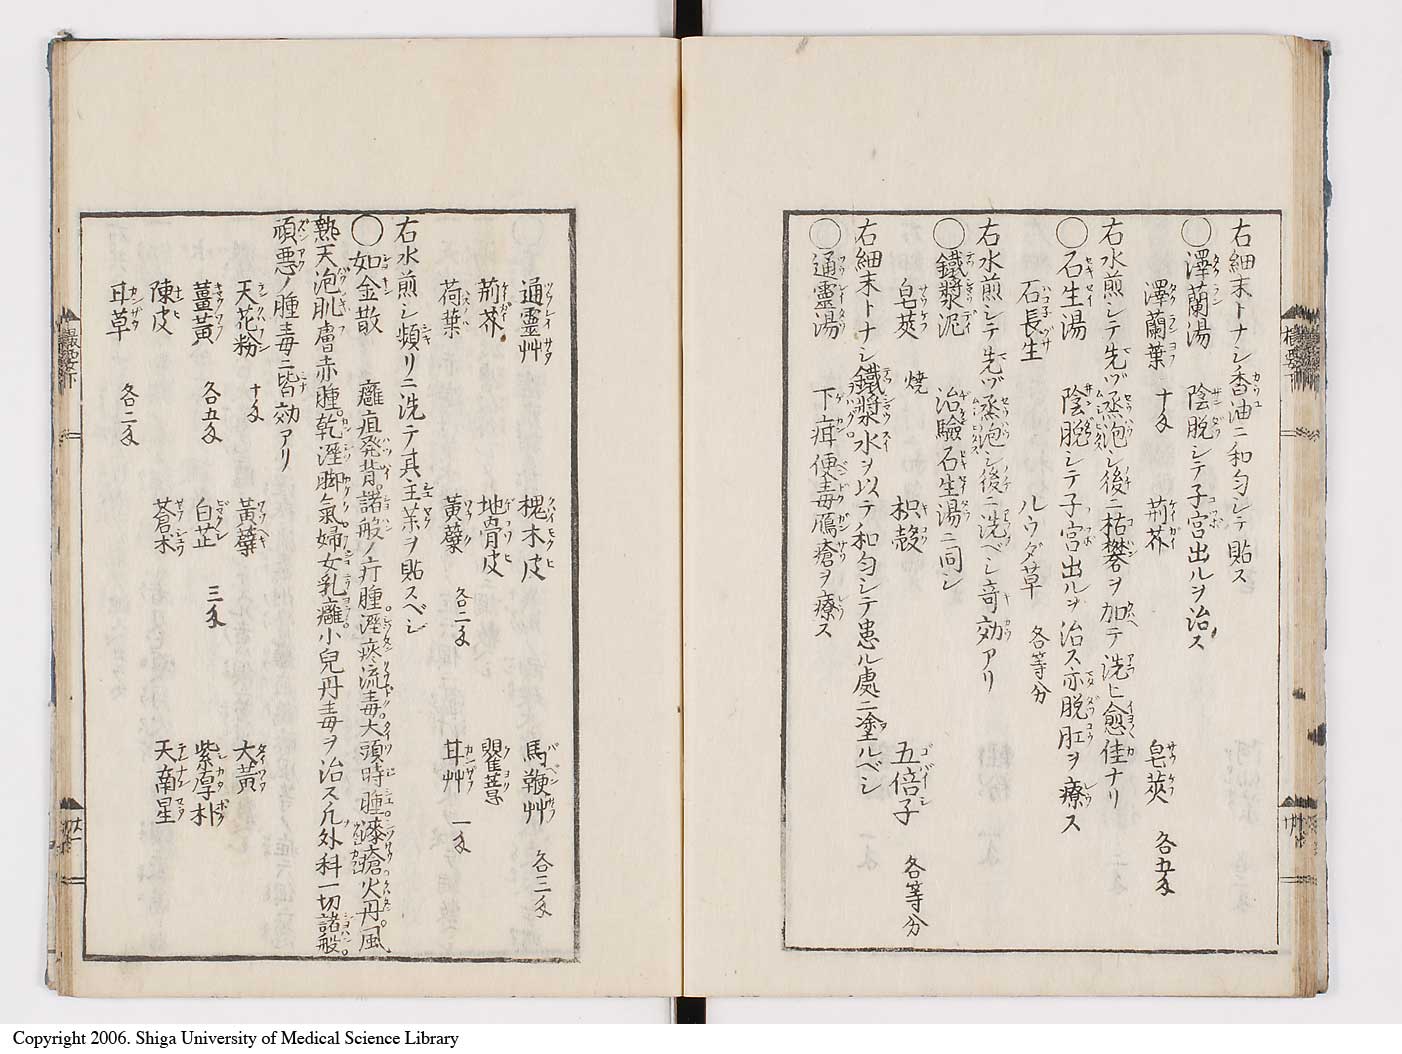 右細末トナシ香油ニ和匀シテ貼ス
○澤蘭湯 陰脱シテ子宮出ルヲ治ス
澤蘭葉 十匁 荊芥 皂莢 各五匁
右水煎シテ先ヅ蒸泡シ後ニ枯礬ヲ加テ洗ヒ愈佳ナリ
○石生湯 陰脱シテ子宮出ルヲ治ス亦脱肛ヲ療ス
石長生 ルウダ草 各等分
右水煎シテ先ヅ蒸泡シ後ニ洗ベシ奇効アリ
○鐵漿泥 治驗石生湯ニ同シ
皂莢 焼 枳殻 五倍子 各等分
右細末トナシ鐵漿水ヲ以テ和匀シテ患ル處ニ塗ルベシ
○通靈湯 下疳便毒鴈瘡ヲ療ス
通靈艸 槐木皮 馬鞭艸 各三匁
荊芥 地骨皮 瞿麦
荷葉 黄蘗 各二匁 甘艸 一匁
右水煎シ頻リニ洗テ其主薬ヲ貼スベシ
○如金散 癰疽発背諸般ノ疔腫溼痰流毒大頭時腫漆瘡火丹風
熱天泡肌膚赤腫乾溼脚氣婦女乳癰小兒丹毒ヲ治ス凡外科一切諸般
頑悪ノ腫毒ニ皆効アリ
天花粉 十匁 黄蘗 大黄
薑黄 各五匁 白芷 三匁 紫厚朴
陳皮 蒼朮 天南星
甘草 各二匁
Copyright 2006. Shiga University of Medical Science Library